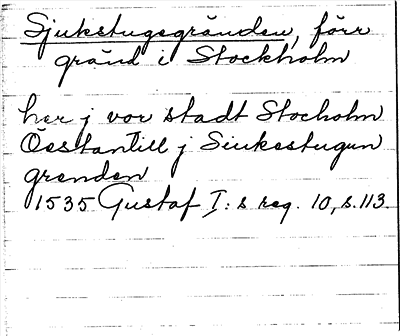 Sjukstugsgränden, förr
gränd i Stockholm
her j vor stadt Stocholm
Östantill j Siukestugun
grenden
1535 Gustaf I:s reg. 10, s. 113.